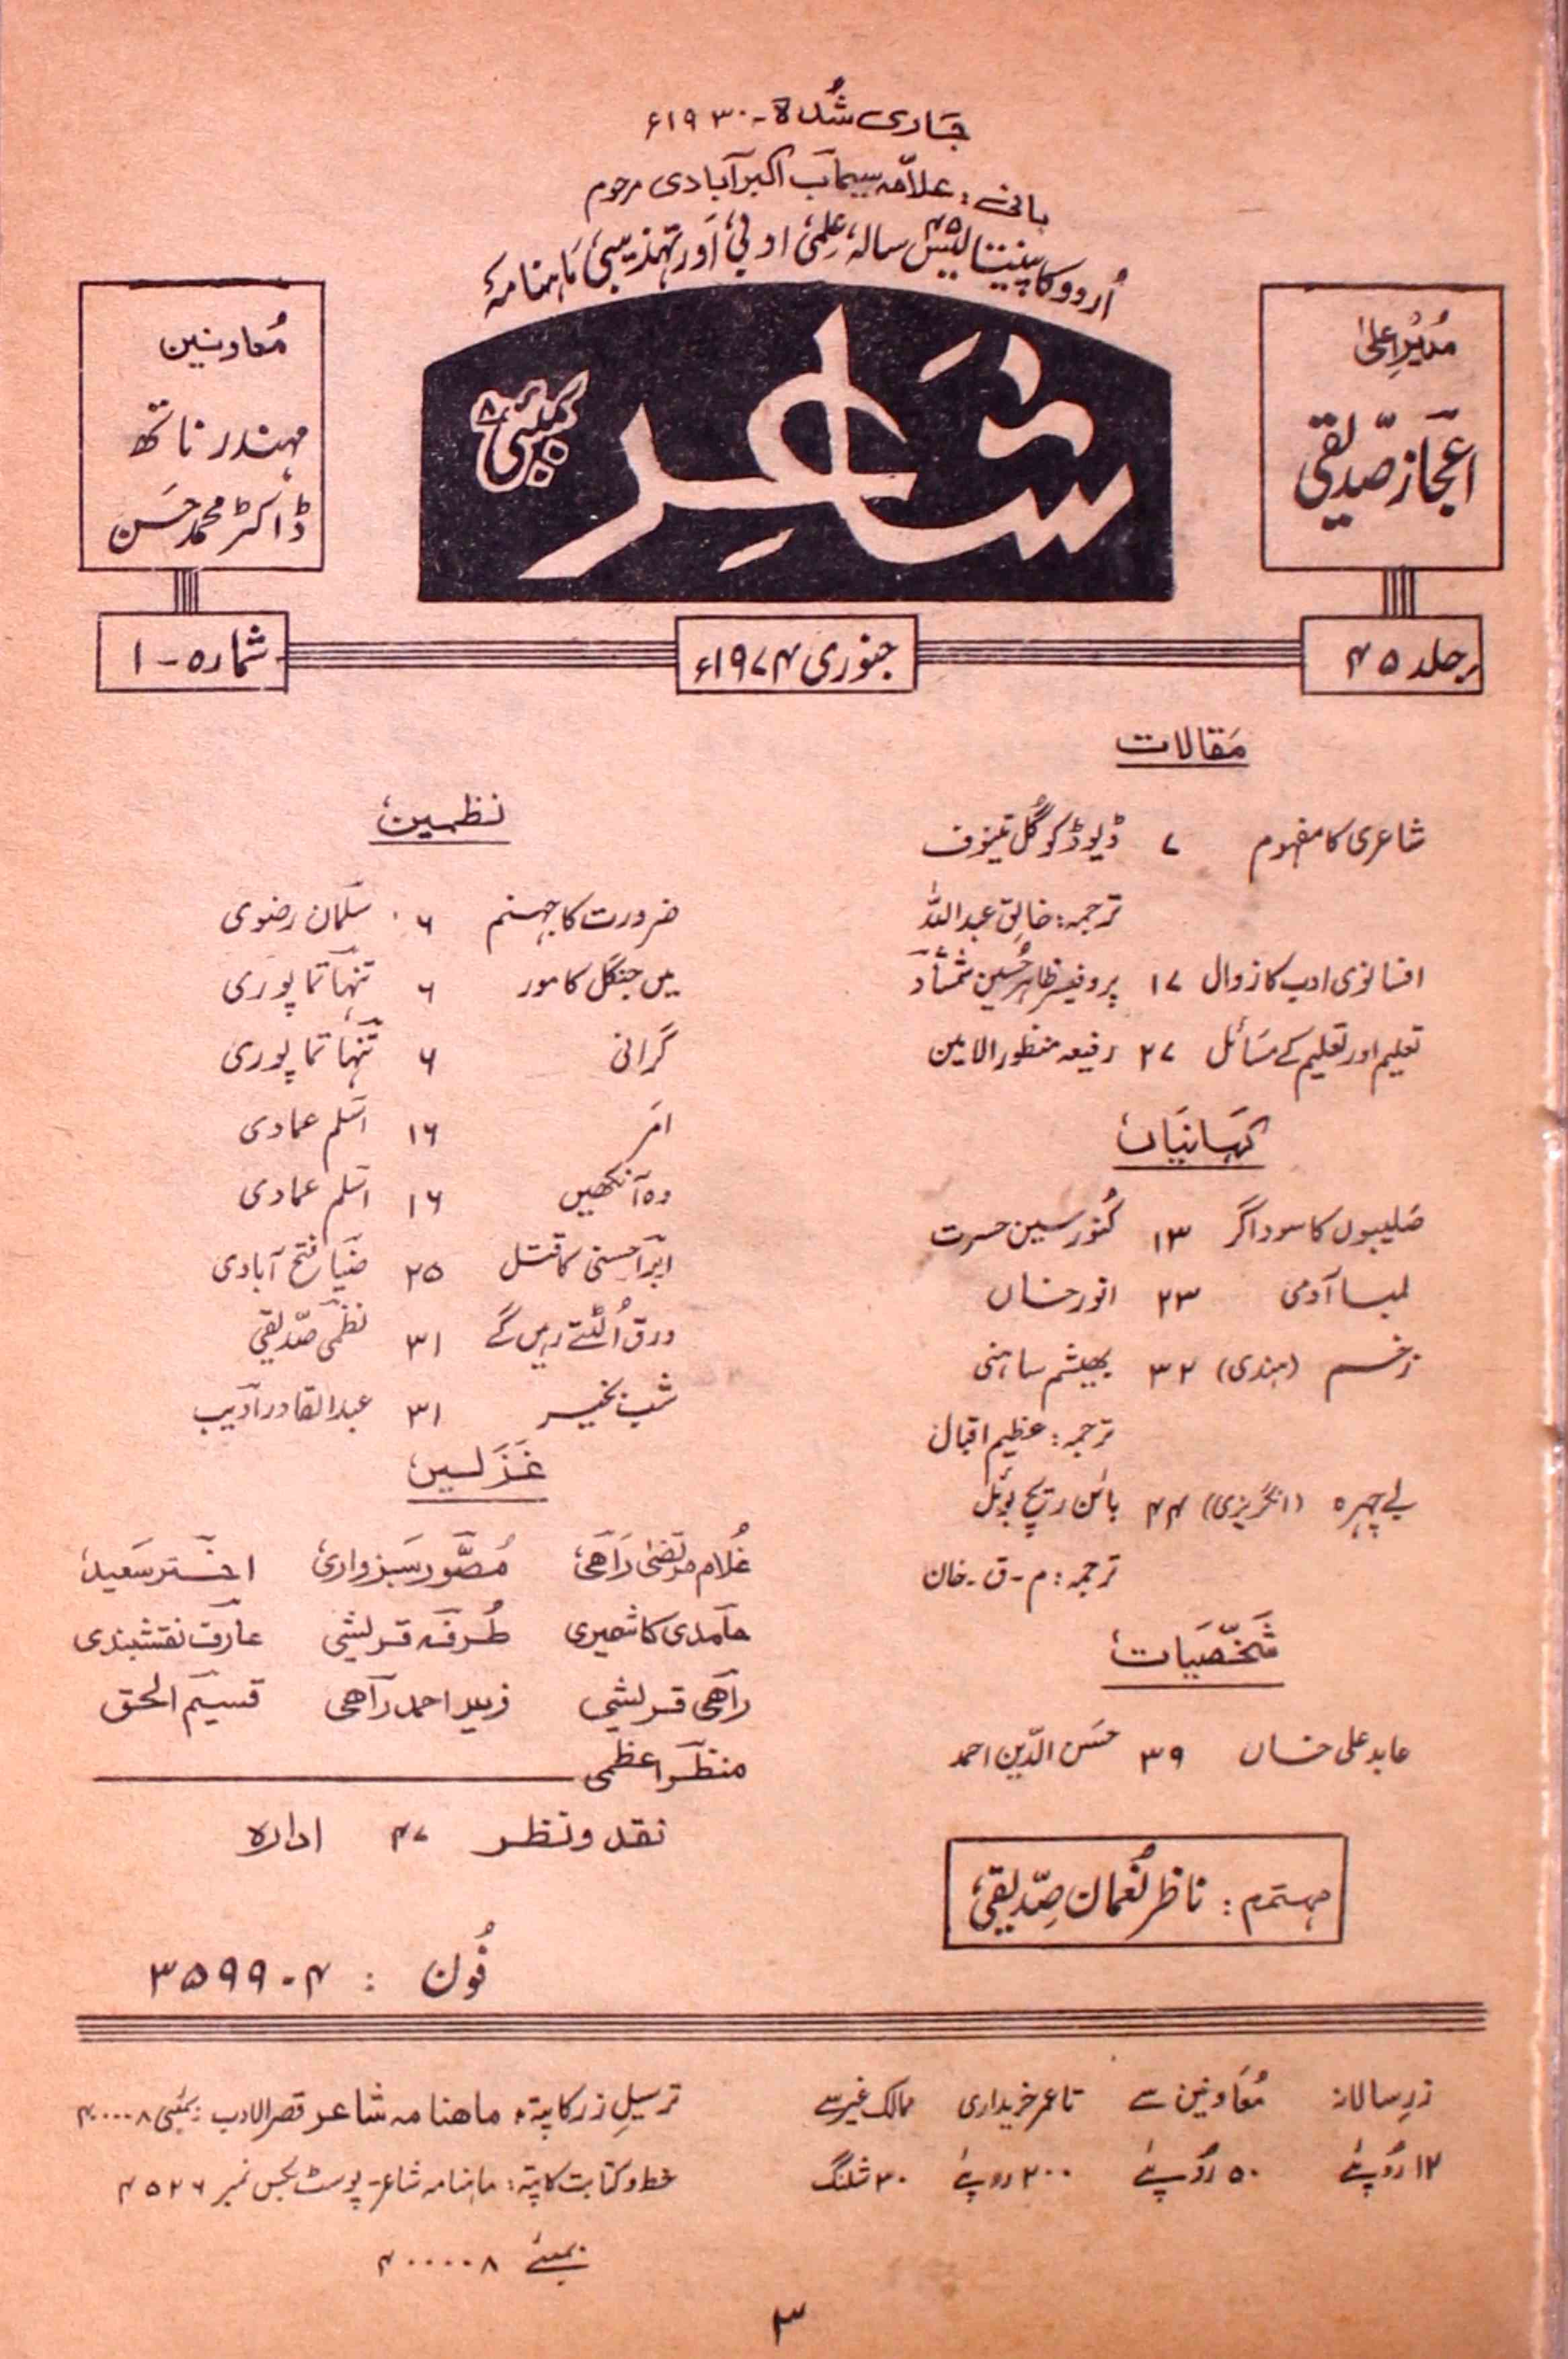 جاری شدہ - ۱۹۳۰ء
بانی: علامہ سیماب اکبرآبادی مرحوم
اُردو کا پینتالیس ۴۵ سالہ علمی ادبی اور تہذیبی ماہنامہ
مُدیرِ اعلیٰ
اعجاز صدیقی
شاعر
بمبئی ۸
مُعاونین
مہندر ناتھ
ڈاکٹر محمد حسن
جلد ۴۵
جنوری ۱۹۷۴ء
شمارہ - ۱
مقالات
شاعری کا مفہوم ۷ ڈیوڈ کوگل تینوف
ترجمہ: خالق عبداللہ
افسانوی ادب کا زوال ۱۷ پروفیسر ظاہر حُسین شمشاد
تعلیم اور تعلیم کے مسائل ۲۷ رفیعہ منظور الامین
کہانیاں
صلیبوں کا سوداگر ۱۳ کنور سین حسرت
لمبا آدمی ۲۳ انور خاں
زخم (ہندی) ۳۲ بھیشم ساہنی
ترجمہ: عظیم اقبال
بے چہرہ (انگریزی) ۴۴
ترجمہ: م - ق - خان
شخصیات
عابد علی خاں ۳۹ حسن الدین احمد
مہتمم: ناظر نُعمان صدیقی
نظمیں
ضرورت کا جہنم ۶ سلمان رضوی
میں جنگل کا مور ۶ تنہا تماپوری
گرانی ۶ تنہا تماپوری
امر ۱۶ اسلم عمادی
وہ آنکھیں ۱۶ اسلم عمادی
ابر احسنی کا قتل ۲۵ ضیا فتح آبادی
ورق اُلٹتے رہیں گے ۳۱ نظمی صدیقی
شب بخیر ۳۱ عبدالقادر ادیب
غزلیں
غلام مرتضیٰ راہی مُصّور سبزواری اختر سعید
حامدی کاشمیری طُرفہ قریشی عارف نقشبندی
راہی قریشی زبیر احمد راہی قسیم الحق
منظر اعظمی
نقد و نظر ۴۷ ادارہ
فُون : ۳۵۹۹۰۴
زرِ سالانہ مُعاونین سے تا عمر خریداری ممالک غیر سے
۱۲ روپئے ۵۰ روپئے ۲۰۰ روپئے ۳۰ شلنگ
ترسیلِ زر کا پتہ: ماہنامہ شاعر قصر الادب بمبئی ۴۰۰۰۰۸
خط و کتابت کا پتہ: ماہنامہ شاعر - پوسٹ بکس نمبر ۴۵۲۶
بمبئی ۴۰۰۰۰۸
۳